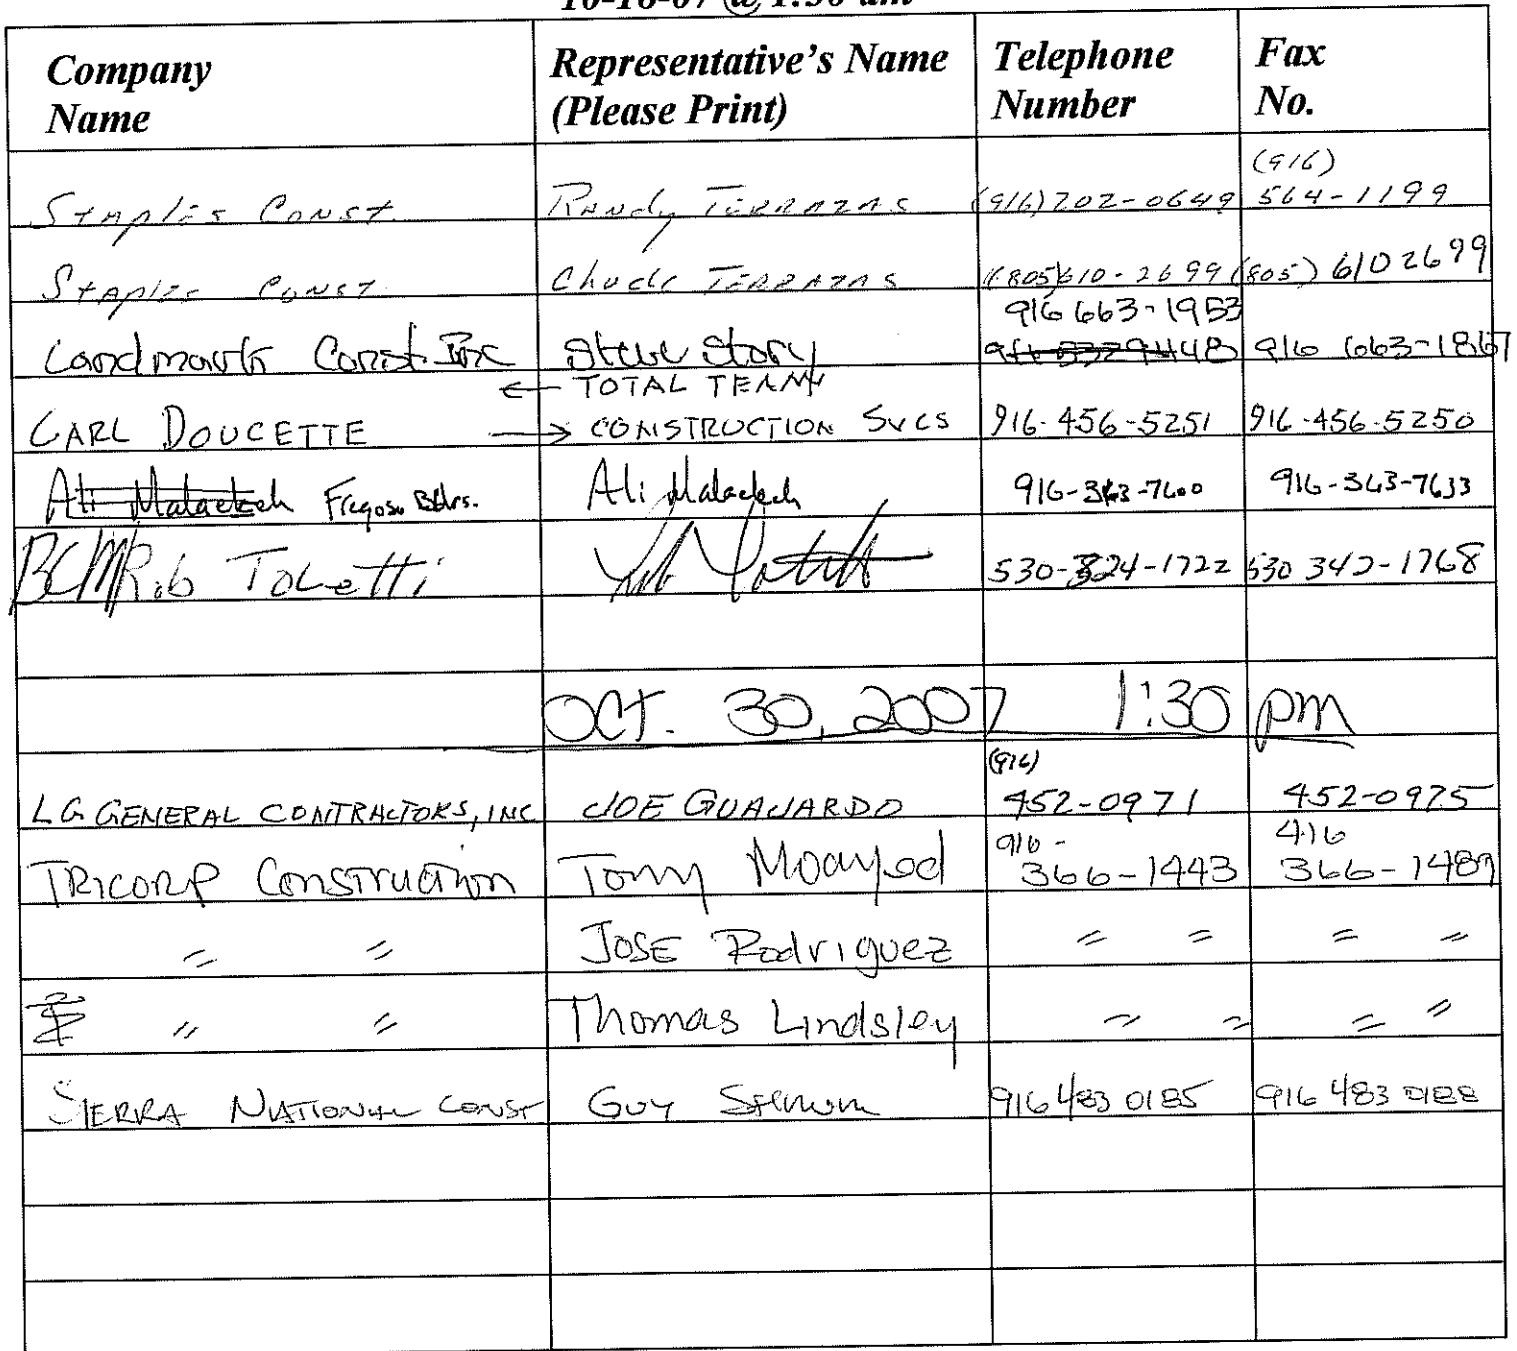 10-16-07 @ 1:30 am
Company Name Representative's Name (Please Print) Telephone Number Fax No.
Staples Const Randy Terrazas (916) 202-0649 (916) 564-1199
Staples Const. Chuck Terrazas (805) 610-2699 (805) 610 2699
Landmark Const. Inc Steve Story 916 663-1953 916 663-1867
← TOTAL TEAM
CARL DOUCETTE → CONSTRUCTION SVCS 916-456-5251 916-456-5250
Ali Malaekeh Fregoso Bldrs. Ali Malaekeh 916-363-7600 916-363-7633
BCM Rob Toletti 530-324-1722 530 342-1768
OCT. 30, 2007 1:30 pm
LG GENERAL CONTRACTORS, INC JOE GUAJARDO (916) 452-0971 452-0975
TRICORP Construction Tony Moayed 916-366-1443 916 366-1489
" " JOSE Rodriguez " " " "
" " Thomas Lindsley " " " "
SIERRA NATIONAL CONST GUY 916 483 0185 916 483 0188